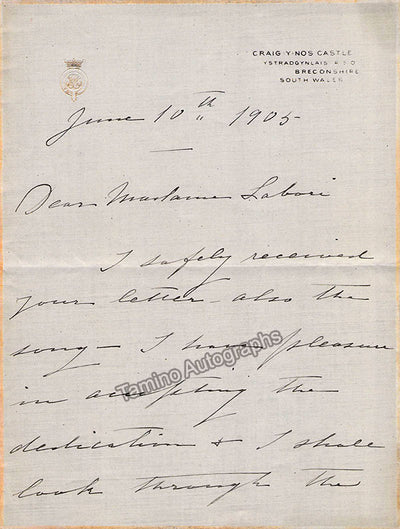 CRAIG-Y-NOS CASTLE
YSTRADGYNLAIS R.S.O
BRECONSHIRE
SOUTH WALES
June 10th 1905
Dear Madame Labori
I safely received
your letter - also the
song - I have pleasure
in accepting the
dedication & I shall
look through the
Tamino Autographs